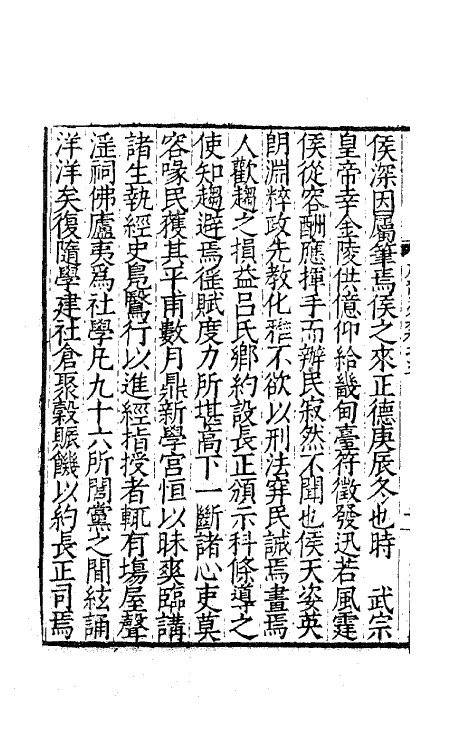 侯深因屬筆焉侯之來正德庚辰冬也時　武宗
皇帝幸金陵供億仰給畿甸臺符徵發迅若風霆
侯從容酬應揮手而辦民寂然不聞也侯天姿英
朗淵粹政先教化雅不欲以刑法弃民誠焉畫焉
人歡趨之損益吕氏鄉約設長正頒示科條導之
使知趨避焉徭賦度力所堪高下一斷諸心吏莫
容喙民獲其平甫數月鼎新學宫恒以昧爽臨講
諸生執經史鳬鷖行以進經指授者輒有塲屋聲
滛祠佛廬夷爲社學凡九十六所閭黨之間絃誦
洋洋矣復隨學建社倉聚榖賑饑以約長正司焉